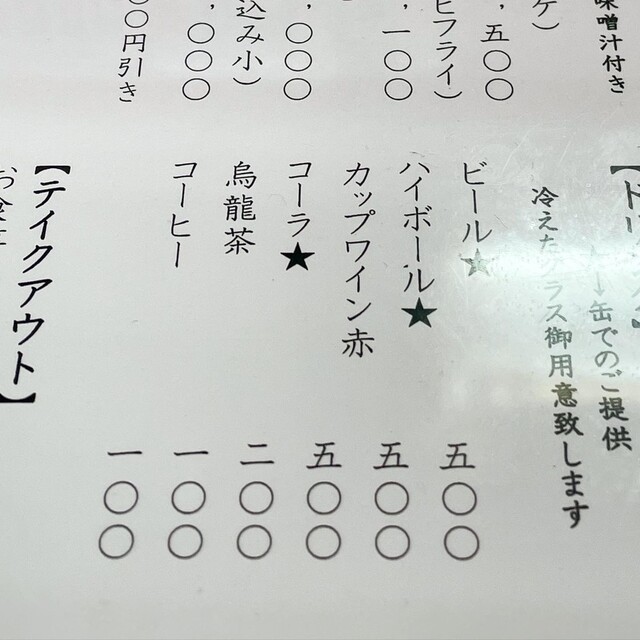 味噌汁付き
ケ）
，五〇〇
ヒフライ）
，一〇〇
，〇〇〇
込み小）
，〇〇〇
〇〇円引き
缶でのご提供
冷えたグラス御用意致します
ビール★ 五〇〇
ハイボール★ 五〇〇
カップワイン赤 五〇〇
コーラ★ 二〇〇
烏龍茶 一〇〇
コーヒー 一〇〇
【テイクアウト】